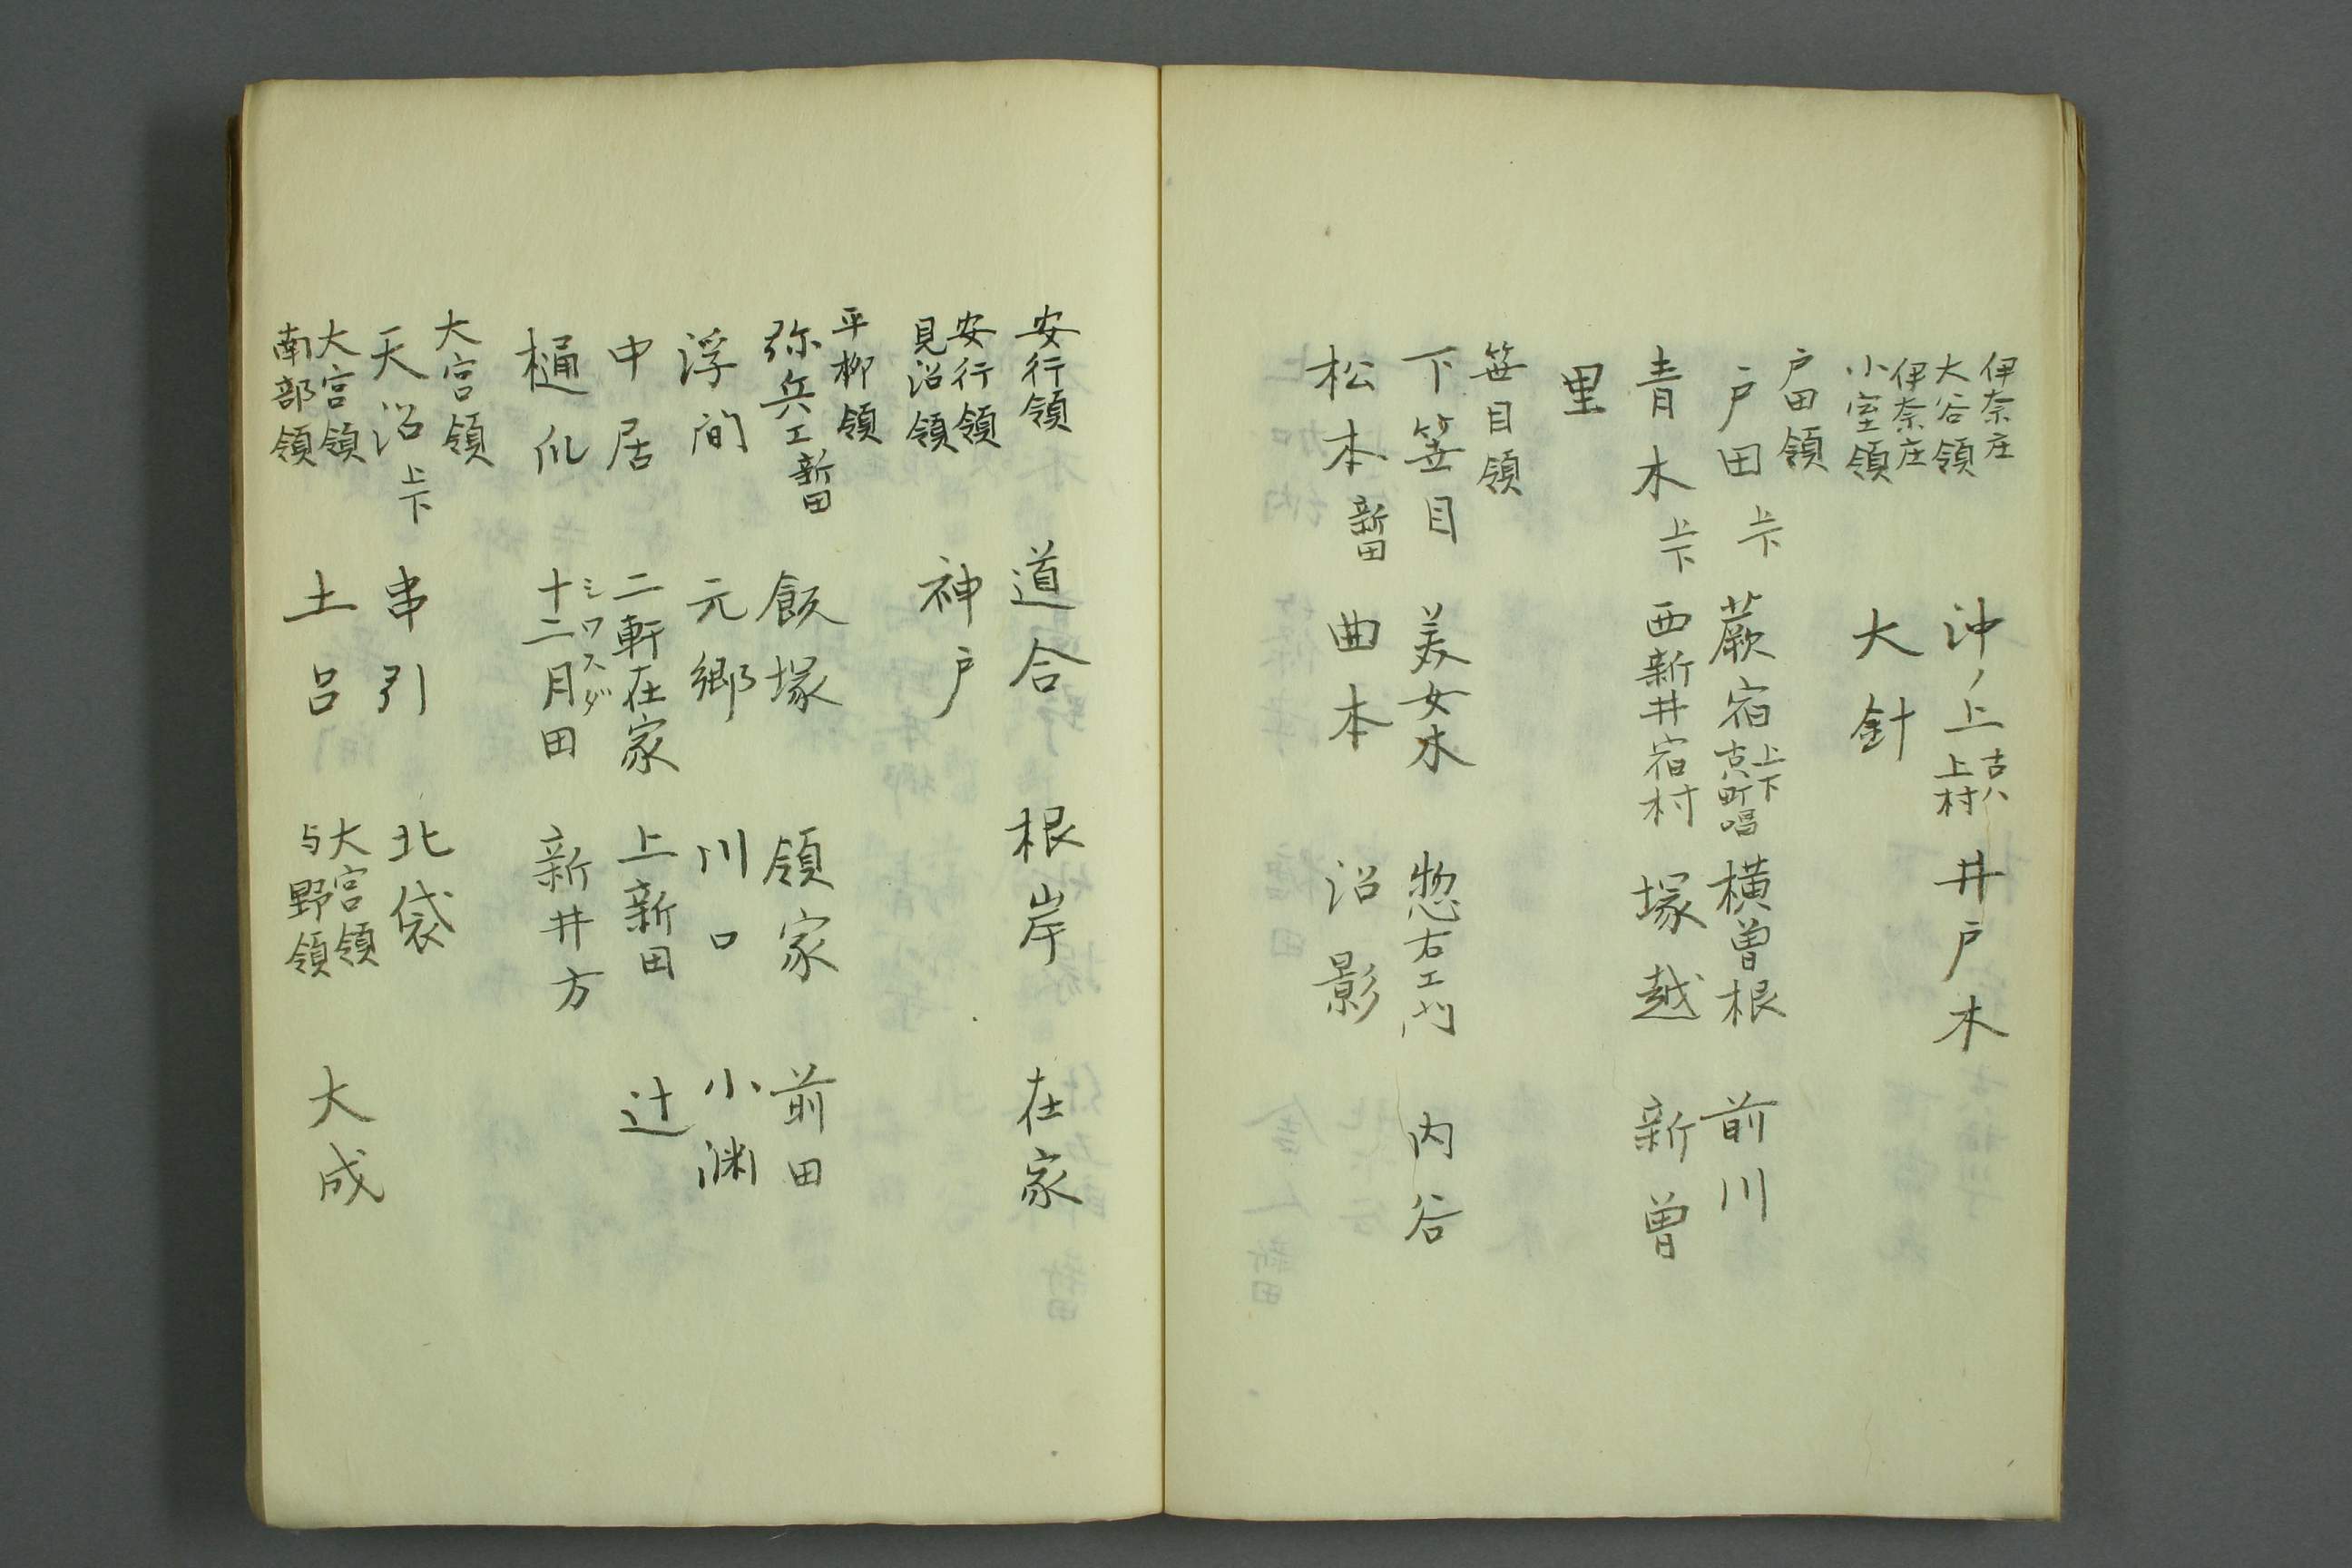 伊奈庄
大谷領
沖ノ上 古ハ上村 井戸木
伊奈庄
小室領
大針
戸田領
戸田 上下 蕨宿 上下 古ハ町唱 横曽根 前川
青木 上下 西新井宿村 塚越 新曽
里
笹目領
下笹目 美女木 惣右エ門 内谷
松本新田 曲本 沼影
安行領 道合 根岸 在家
安行領
見沼領
神戸
平柳領
弥兵エ新田 飯塚 領家 前田
浮間 元郷 川口 小渕
中居 二軒在家 上新田 辻
樋爪 十二月田 シワスダ 新井方
大宮領
天沼 上下 串引 北袋
大宮領
南部領
土呂
大宮領
与野領
大成